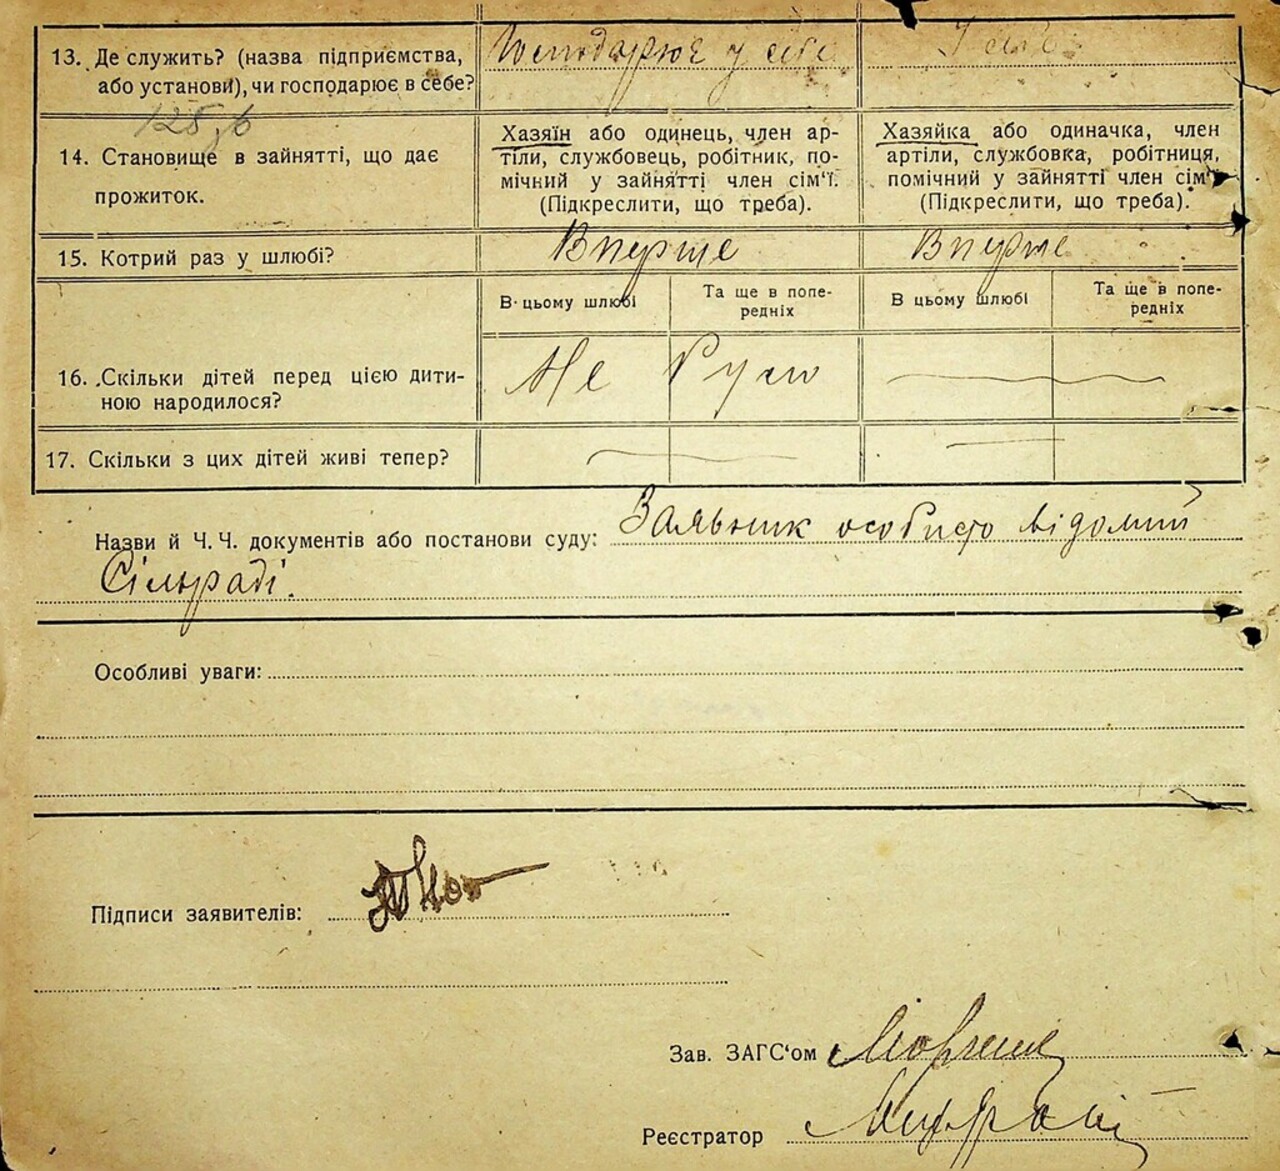 13. Де служить? (назва підприємства, або установи), чи господарює в себе?
Господарює у себе
125, б
14. Становище в зайнятті, що дає прожиток.
Хазяїн або одинець, член ар-
тіли, службовець, робітник, по-
мічний у зайнятті член сім'ї.
(Підкреслити, що треба).
Хазяйка або одиначка, член
артіли, службовка, робітниця,
помічний у зайнятті член сім'ї.
(Підкреслити, що треба).
15. Котрий раз у шлюбі? Вперше Вперше
В цьому шлюбі
Та ще в попе-
редніх
В цьому шлюбі
Та ще в попе-
редніх
16. Скільки дітей перед цією дити-
ною народилося?
Не було
17. Скільки з цих дітей живі тепер?
Назви й Ч.Ч. документів або постанови суду: Заявник особисто відомий
Сільраді.
Особливі уваги:
Підписи заявителів:
Зав. ЗАГС'ом
Реєстратор